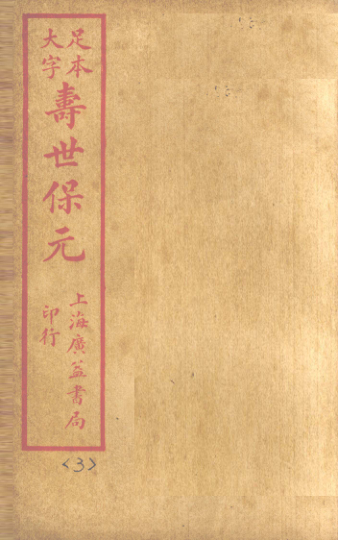 足本
大字
壽世保元
上海廣益書局
印行
<3>